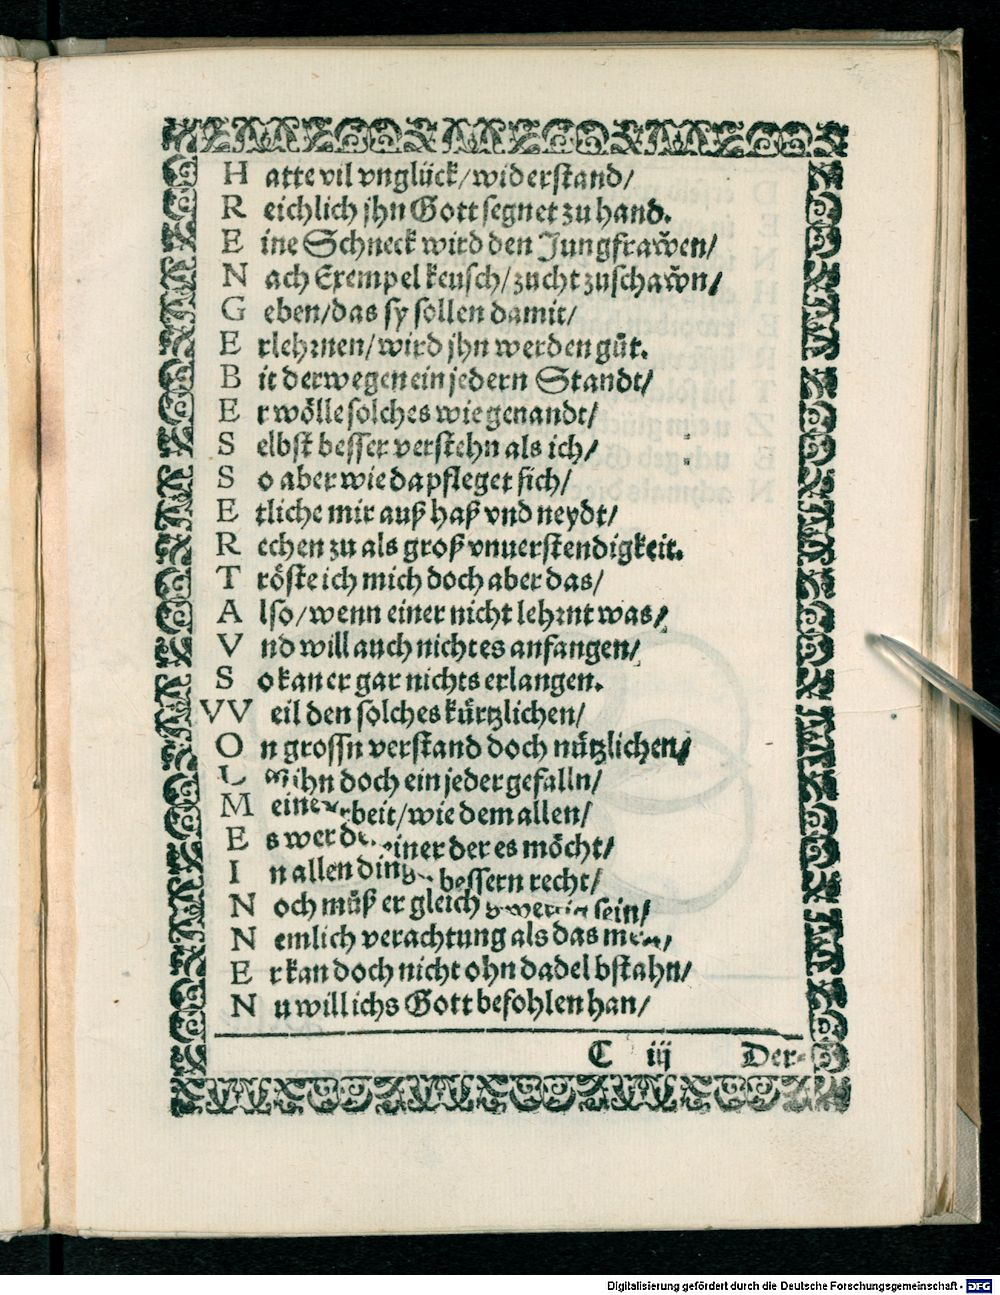 H atte vil vnglück/ widerstand/
R eichlich jhn Gott segnet zu hand.
E ine Schneck wird den Jungfrawen/
N ach Exempel keusch/ zucht zuschawn/
G eben/ das sy sollen damit/
E rlehrnen/ wird jhn werden güt.
B it derwegen ein jedern Standt/
E r wölle solches wie genandt/
S elbst besser verstehn als ich/
S o aber wie da pfleget sich/
E tliche mir auß haß vnd neydt/
R echen zu als groß vnuerstendigkeit.
T röste ich mich doch aber das/
A lso/ wenn einer nicht lehrnt was/
V nd will auch nichtes anfangen/
S o kan er gar nichts erlangen.
VV eil den solches kürtzlichen/
O n grossn verstand doch nützlichen/
L jhn doch ein jeder gefalln/
M eine rbeit/ wie dem allen/
E s werd einer der es möcht/
I n allen ding bessern recht/
N och müß er gleich sein/
N emlich verachtung als das
E r kan doch nicht ohn dadel bstahn/
N u will ichs Gott befohlen han/
C iij Der-
Digitalisierung gefördert durch die Deutsche Forschungsgemeinschaft - DFG